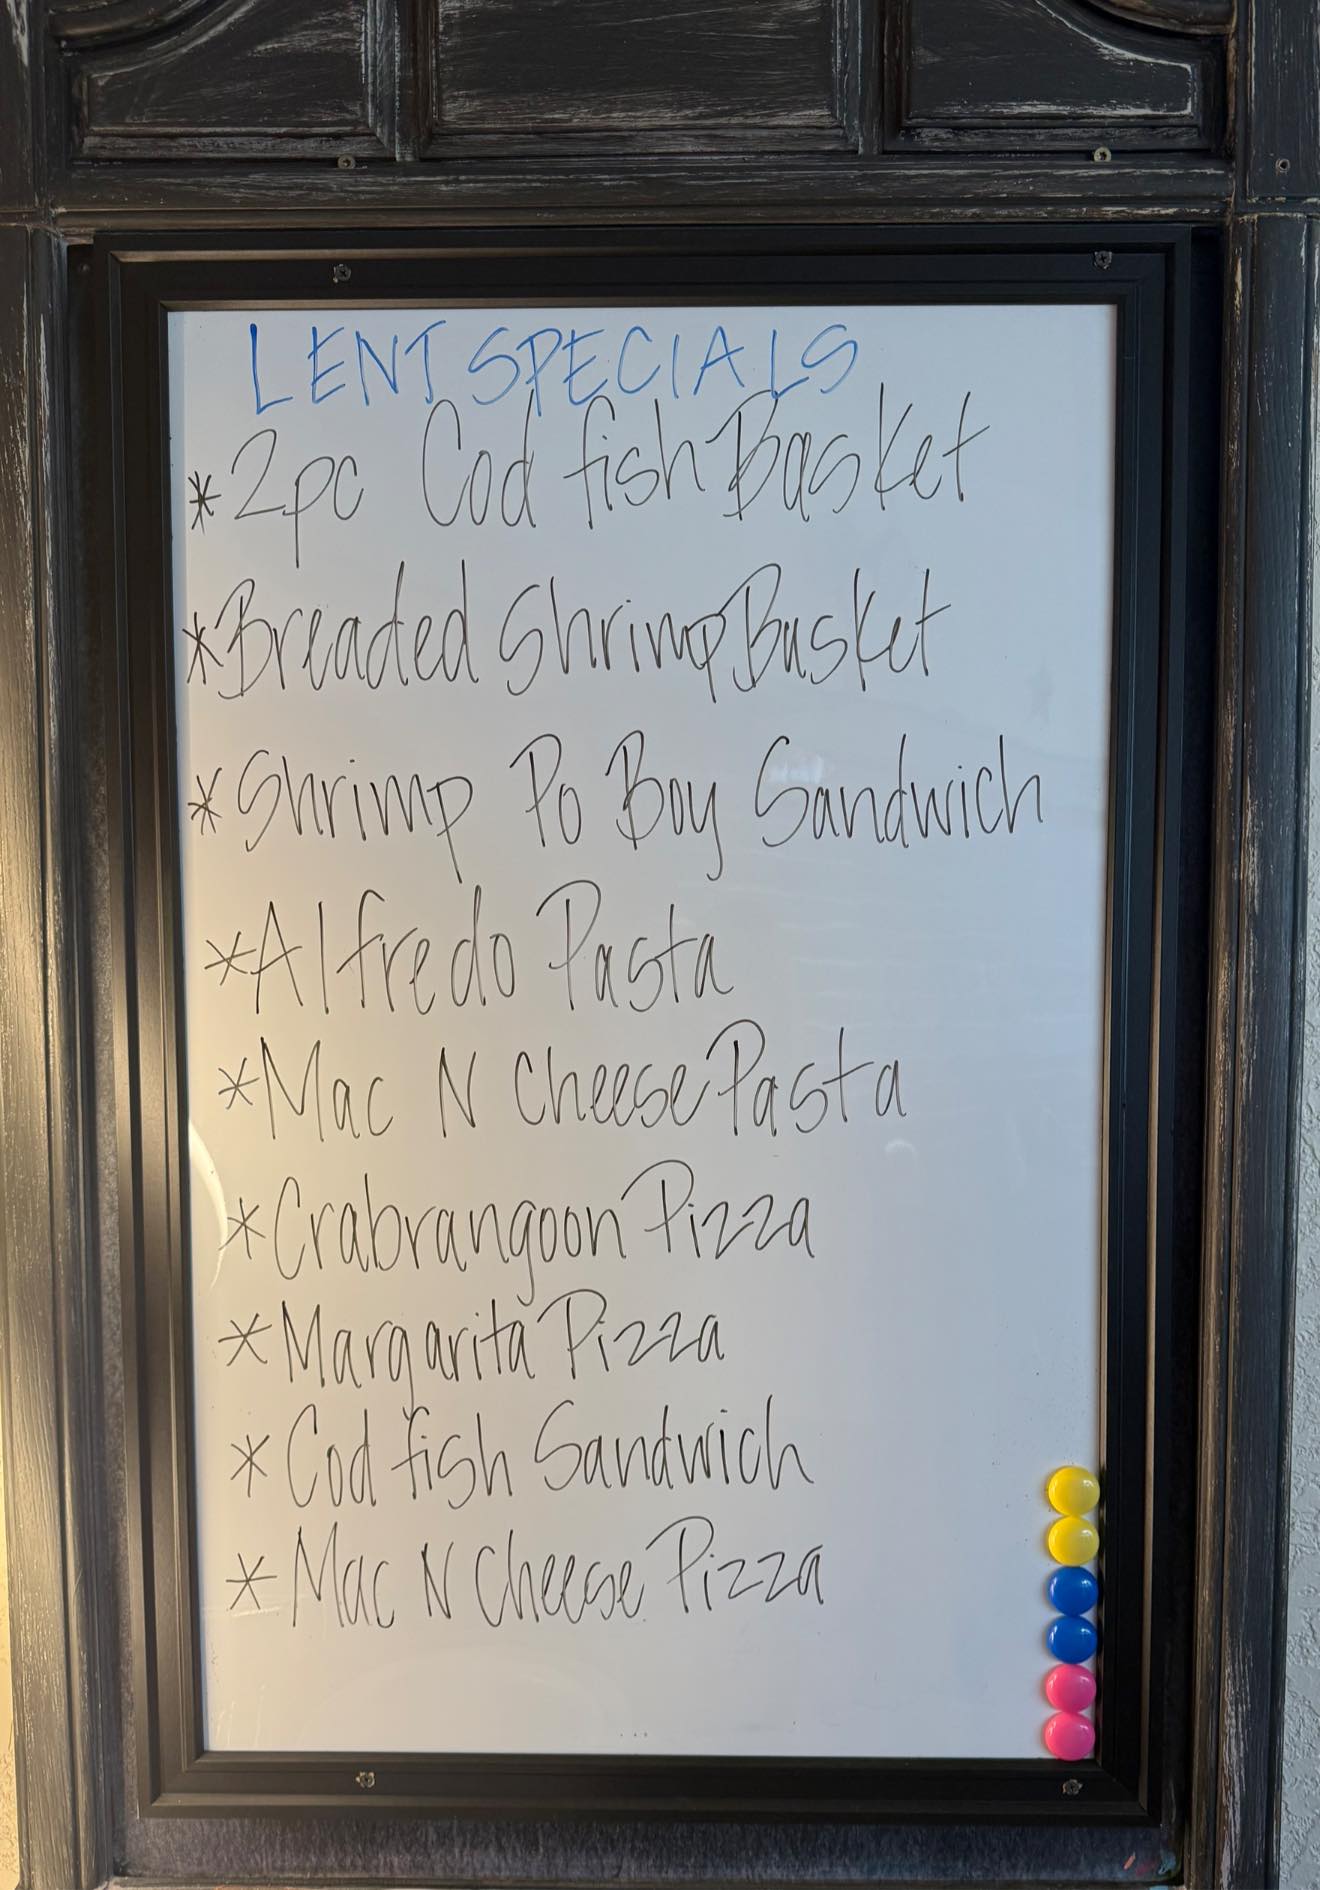 LENT SPECIALS
* 2pc Cod fish Basket
* Breaded Shrimp Basket
* Shrimp Po Boy Sandwich
* Alfredo Pasta
* Mac N Cheese Pasta
* Crabrangoon Pizza
* Margarita Pizza
* Cod fish Sandwich
* Mac N Cheese Pizza